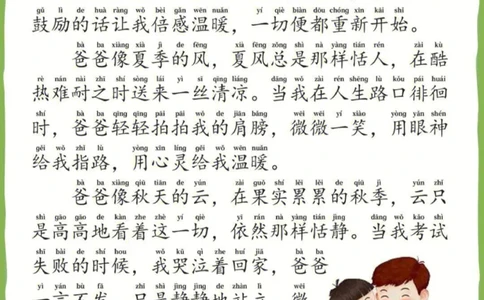 gǔ lì de huà ràng wǒ bèi gǎn wēn nuǎn yí qiè biàn dōu chóng xīn kāi shǐ
鼓励的话让我倍感温暖，一切便都重新开始。
bà ba xiàng xià jì de fēng xià fēng zǒng shì nà yàng tián rén zài kù
爸爸像夏季的风，夏风总是那样恬人，在酷
rè nán nài zhī shí sòng lái yì sī qīng liáng dāng wǒ zài rén shēng lù kǒu pái huái
热难耐之时送来一丝清凉。当我在人生路口徘徊
shí bà ba qīng qīng pāi pāi wǒ de jiān bǎng wēi wēi yí xiào yòng yǎn shén
时，爸爸轻轻拍拍我的肩膀，微微一笑，用眼神
gěi wǒ zhǐ lù yòng xīn líng gěi wǒ wēn nuǎn
给我指路，用心灵给我温暖。
bà ba xiàng qiū tiān de yún zài guǒ shí lěi lěi de qiū jì yún zhǐ
爸爸像秋天的云，在果实累累的秋季，云只
shì gāo gāo de kàn zhe zhè yí qiè yī rán nà yàng tián jìng dāng wǒ kǎo shì
是高高地看着这一切，依然那样恬静。当我考试
shī bài de shí hou wǒ kū qì zhe huí jiā bà ba
失败的时候，我哭泣着回家，爸爸
yì yán bù fā zhǐ shì jìng jìng de zhàn lì wēi
一言不发，只是静静地站立，微